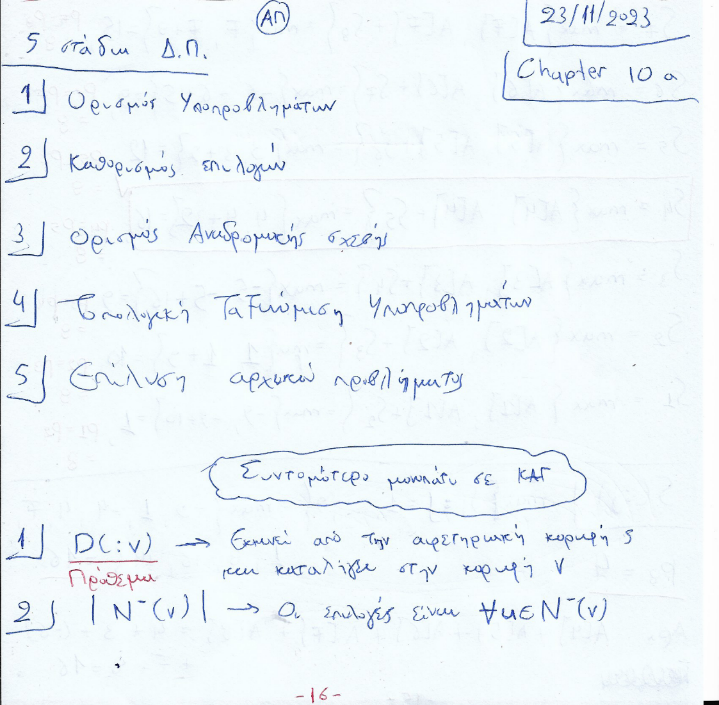 ΑΠ
23/11/2023
Chapter 10 a
5 στάδια Δ.Π.
1 Ορισμός Υποπροβλημάτων
2 Καθορισμός επιλογών
3 Ορισμός Αναδρομικής σχέσης
4 Τοπολογική Ταξινόμιση Υποπροβλημάτων
5 Επίλυση αρχικού προβλήματος
Συντομότερο μονοπάτι σε ΚΑΓ
1 D(:v) → Εκκινεί από την αφετηριακή κορυφή s
Πρόθεμα και καταλήγει στην κορυφή v
2 |N⁻(v)| → Οι επιλογές είναι ∀u∈N⁻(v)
-16-